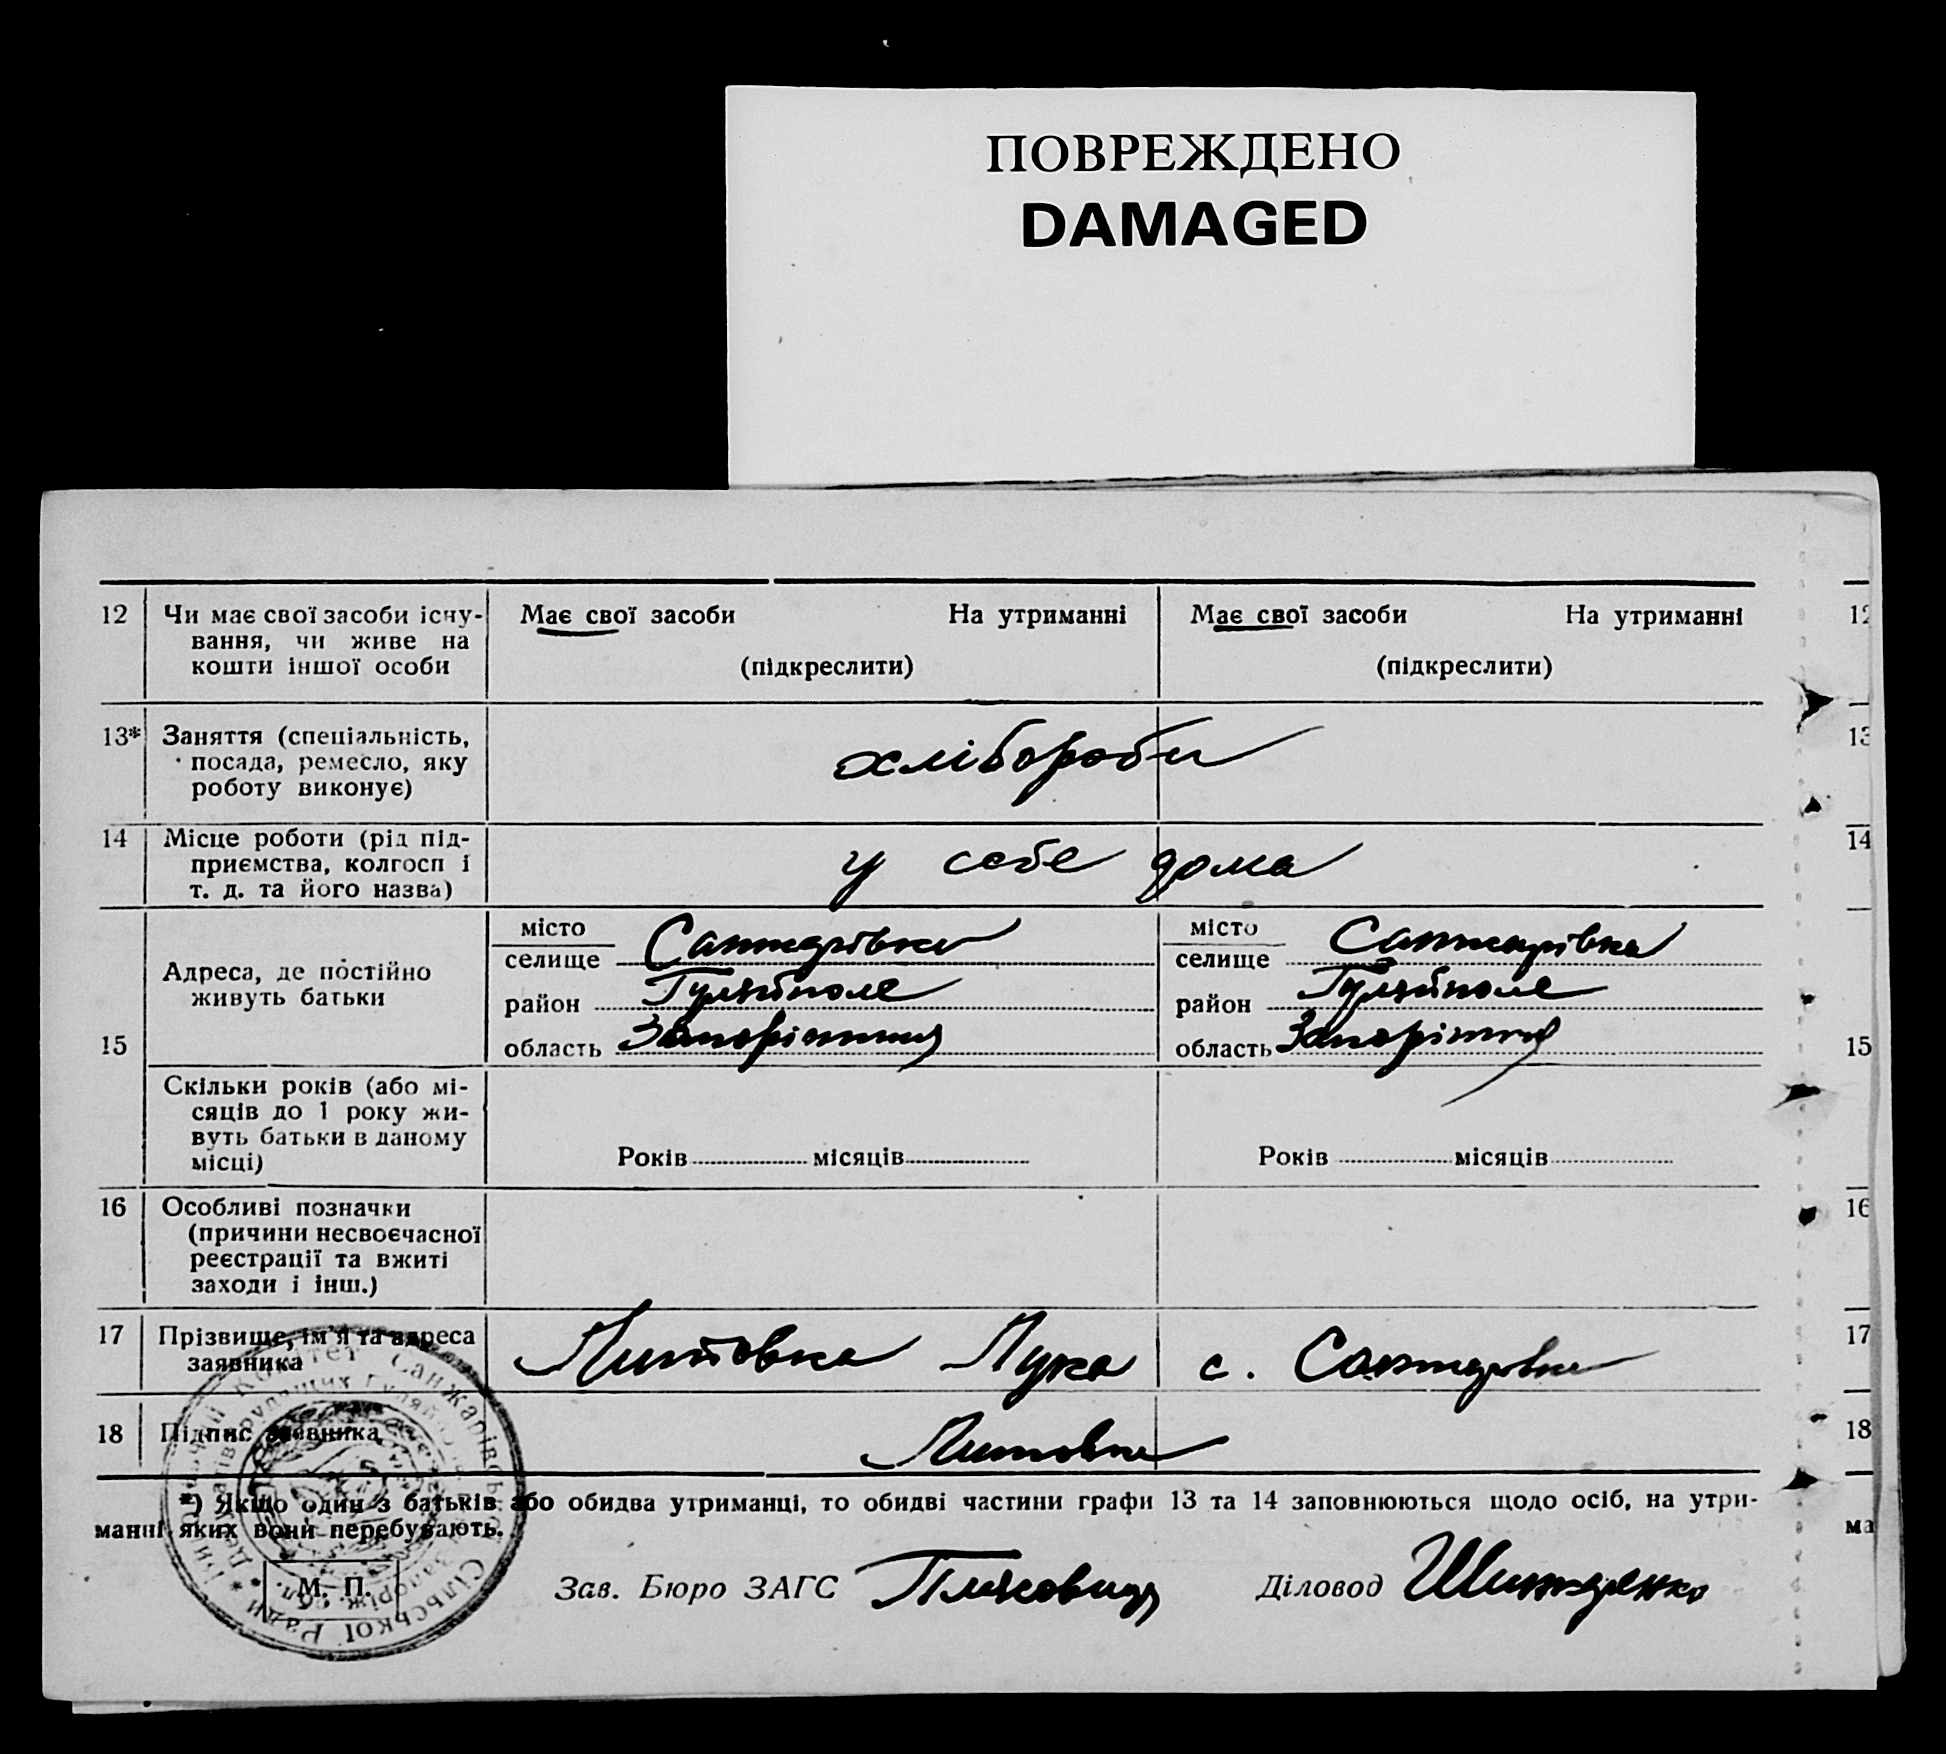 ПОВРЕЖДЕНО
DAMAGED
12 Чи має свої засоби існу- Має свої засоби На утриманні Має свої засоби На утриманні 12
вання, чи живе на
кошти іншої особи (підкреслити) (підкреслити)
13* Заняття (спеціальність, хлібороби 13
посада, ремесло, яку
роботу виконує)
14 Місце роботи (рід під- у себе дома 14
приємства, колгосп і
т. д. та його назва)
місто Санжарівка місто Санжарівка 15
Адреса, де постійно селище селище
живуть батьки район Гуляйполе район Гуляйполе
15 область Запоріжжя область Запоріжжя 15
Скільки років (або мі-
сяців до 1 року жи-
вуть батьки в даному
місці) Років місяців Років місяців
16 Особливі позначки 16
(причини несвоєчасної
реєстрації та вжиті
заходи і інш.)
17 Прізвище, ім'я та адреса Литовка Лука с. Санжаровка 17
заявника
18 Підпис заявника Литовка 18
*) Якщо один з батьків або обидва утриманці, то обидві частини графи 13 та 14 заповнюються щодо осіб, на утри-
манні яких вони перебувають. ма
М. П. Зав. Бюро ЗАГС Діловод
Комітет Санжарівської Сільської Ради